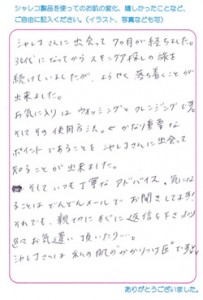 シャレコ製品を使ってのお肌の変化、嬉しかったことなど、
ご自由に記入ください。（イラスト、写真なども可）
シャレコさんに出会って7ヶ月が経ちました。
30代になってからスキンケア探しの旅を
続けていましたが、ようやく落ち着くことが
出来ました。
お気に入りはウォッシングとクレンジングです
そしてその使用方法。かなり重要な
ポイントであることをシャレコさんに出会って
知ることが出来ました。
そしていつも丁寧なアドバイス。気になる
ことはどんどんメールでお聞きしてます!
それでも、親切にすぐに返信を下さり
お気遣い頂いたり…。
シャレコさんは私の肌の"かかりつけ医"です
ありがとうございました。